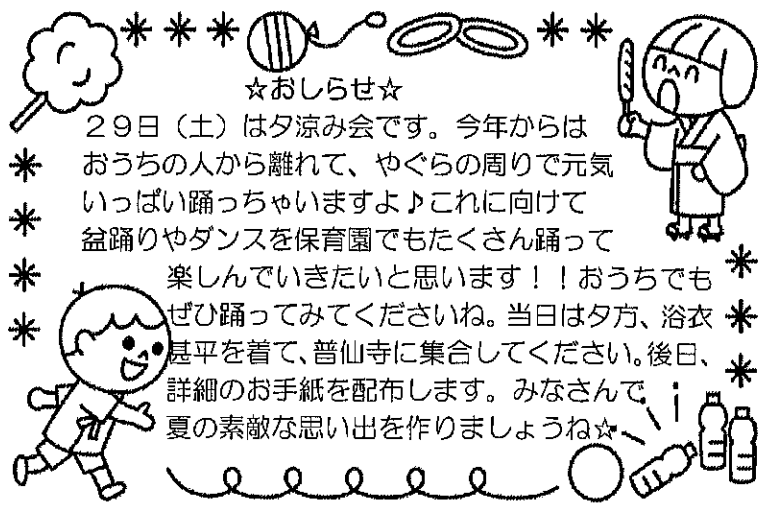 ☆おしらせ☆
２９日（土）は夕涼み会です。今年からは
おうちの人から離れて、やぐらの周りで元気
いっぱい踊っちゃいますよ♪これに向けて
盆踊りやダンスを保育園でもたくさん踊って
楽しんでいきたいと思います！！おうちでも
ぜひ踊ってみてくださいね。当日は夕方、浴衣
甚平を着て、普仙寺に集合してください。後日、
詳細のお手紙を配布します。みなさんで
夏の素敵な思い出を作りましょうね☆